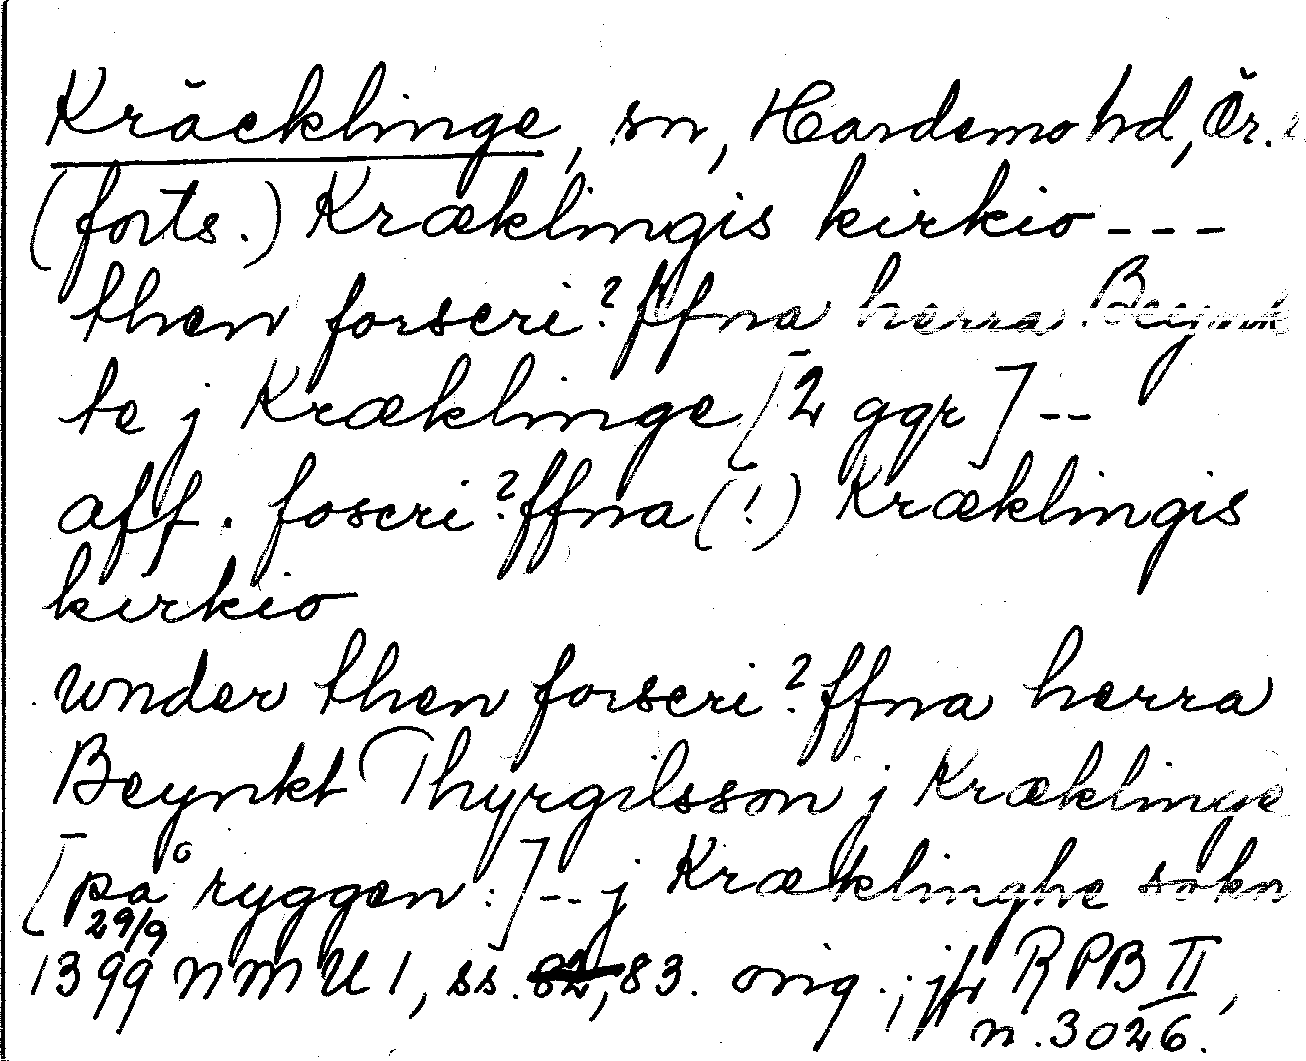 Kräcklinge, sn, Hardemo hd, Ör.
(forts.) Kræklingis kirkio - - -
then forscri?ffna herra Beynk
te j Kræklinge [2 ggr] - -
aff. foscri?ffna (!) Kræklingis
kirkio
wnder then forscri?ffna herra
Beynkt Thyrgilsson j Kræklinge
[på ryggen:] - - j Kræklinghe sokn
29/9
1399 NMU 1, ss. 82, 83. orig.; jfr RPB II,
n. 3026.